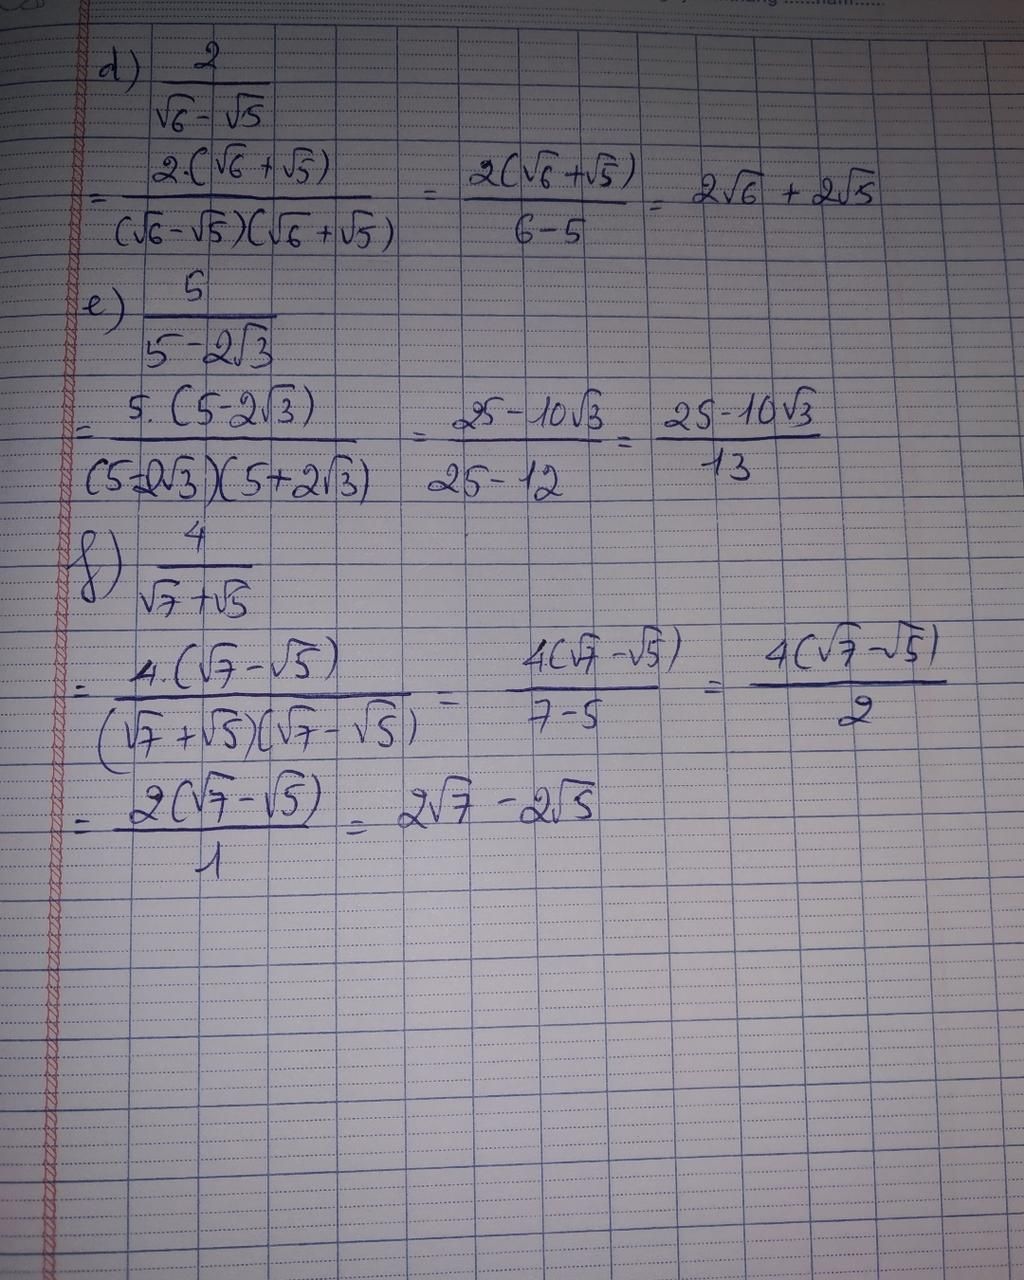 d) 2/(√6 - √5)
= 2.(√6 + √5)/((√6 - √5)(√6 + √5)) = 2(√6 + √5)/(6 - 5) = 2√6 + 2√5
e) 5/(5 - 2√3)
= 5.(5 - 2√3)/((5 - 2√3)(5 + 2√3)) = (25 - 10√3)/(25 - 12) = (25 - 10√3)/13
f) 4/(√7 + √5)
= 4.(√7 - √5)/((√7 + √5)(√7 - √5)) = 4.(√7 - √5)/(7 - 5) = 4(√7 - √5)/2
= 2(√7 - √5)/1 = 2√7 - 2√5